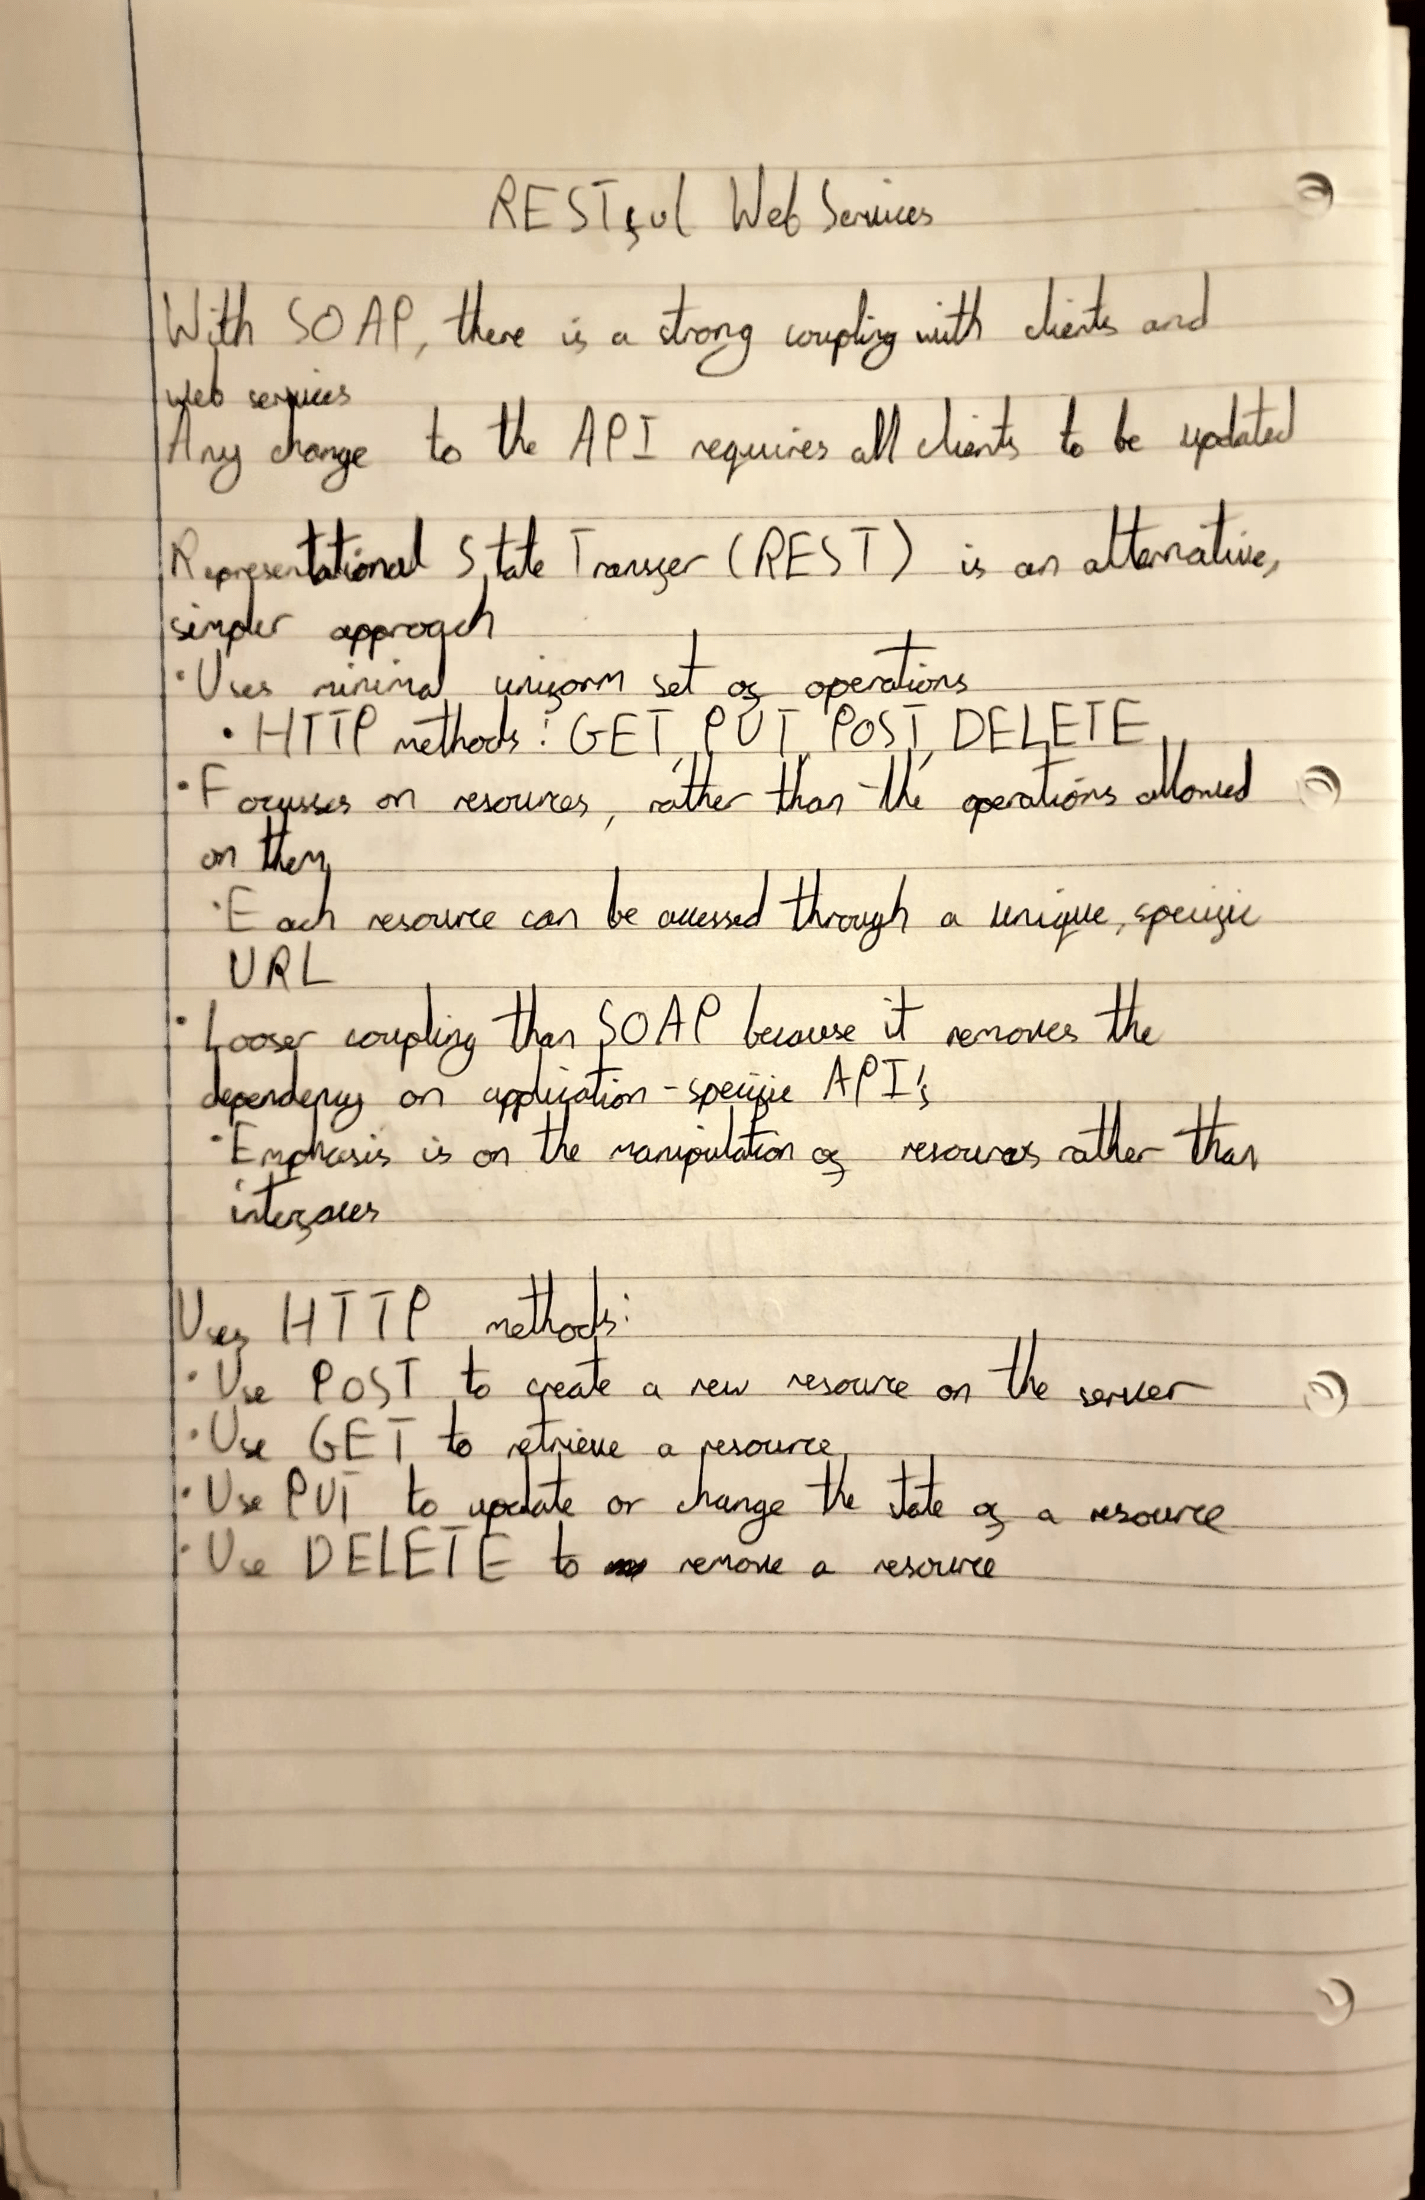 RESTful Web Services
With SOAP, there is a strong coupling with clients and
web services
Any change to the API requires all clients to be updated
Representational State Transfer (REST) is an alternative,
simpler approach
• Uses minimal uniform set of operations
• HTTP methods: GET, PUT, POST, DELETE
• Focusses on resources, rather than the operations allowed
on them
• Each resource can be accessed through a unique, specific
URL
• Looser coupling than SOAP because it removes the
dependency on application-specific API's
• Emphasis is on the manipulation of resources rather than
interfaces
Uses HTTP methods:
• Use POST to create a new resource on the server
• Use GET to retrieve a resource
• Use PUT to update or change the state of a resource
• Use DELETE to remove a resource